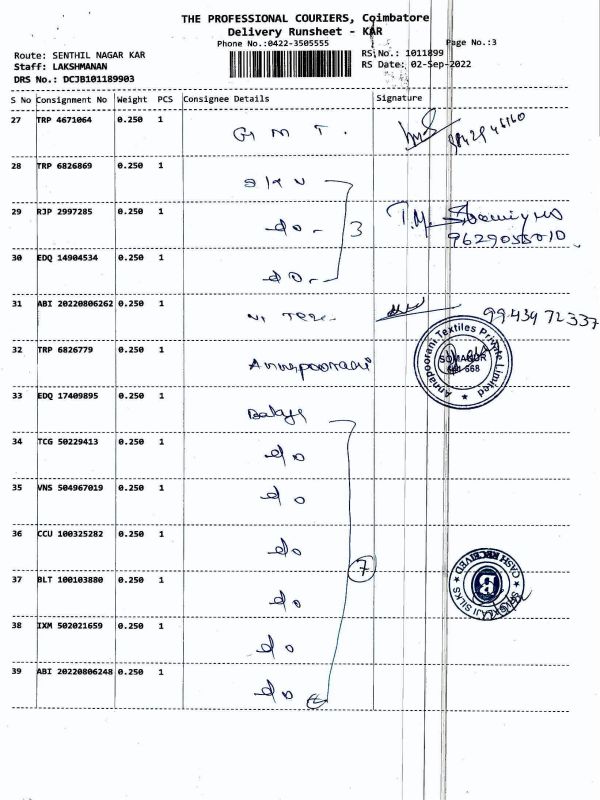 THE PROFESSIONAL COURIERS, Coimbatore
Delivery Runsheet - KAR
Phone No.:0422-3505555
Page No.:3
Route: SENTHIL NAGAR KAR
RS No.: 1011899
Staff: LAKSHMANAN
RS Date: 02-Sep-2022
DRS No.: DCJB101189903
S No Consignment No Weight PCS Consignee Details Signature
27 TRP 4671064 0.250 1 G M T.
28 TRP 6826869 0.250 1
29 RJP 2997285 0.250 1 do - 3 T.M.
9629055010
30 EDQ 14904534 0.250 1 do -
31 ABI 20220806262 0.250 1 99439 72337
32 TRP 6826779 0.250 1 Annapoorani
Annapoorani Textiles Private Limited
SOMANUR
641 668
33 EDQ 17409895 0.250 1 Balaji
34 TCG 50229413 0.250 1 do
35 VNS 504967019 0.250 1 do
36 CCU 100325282 0.250 1 do
7
37 BLT 100103880 0.250 1 do
CASH RECEIVED
B
SILKS
38 IXM 502021659 0.250 1 do
39 ABI 20220806248 0.250 1 do